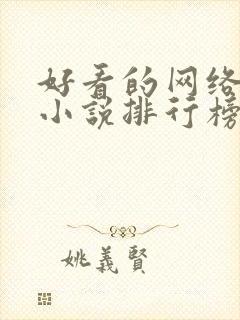 好看的网络
小说排行榜
姚義賢